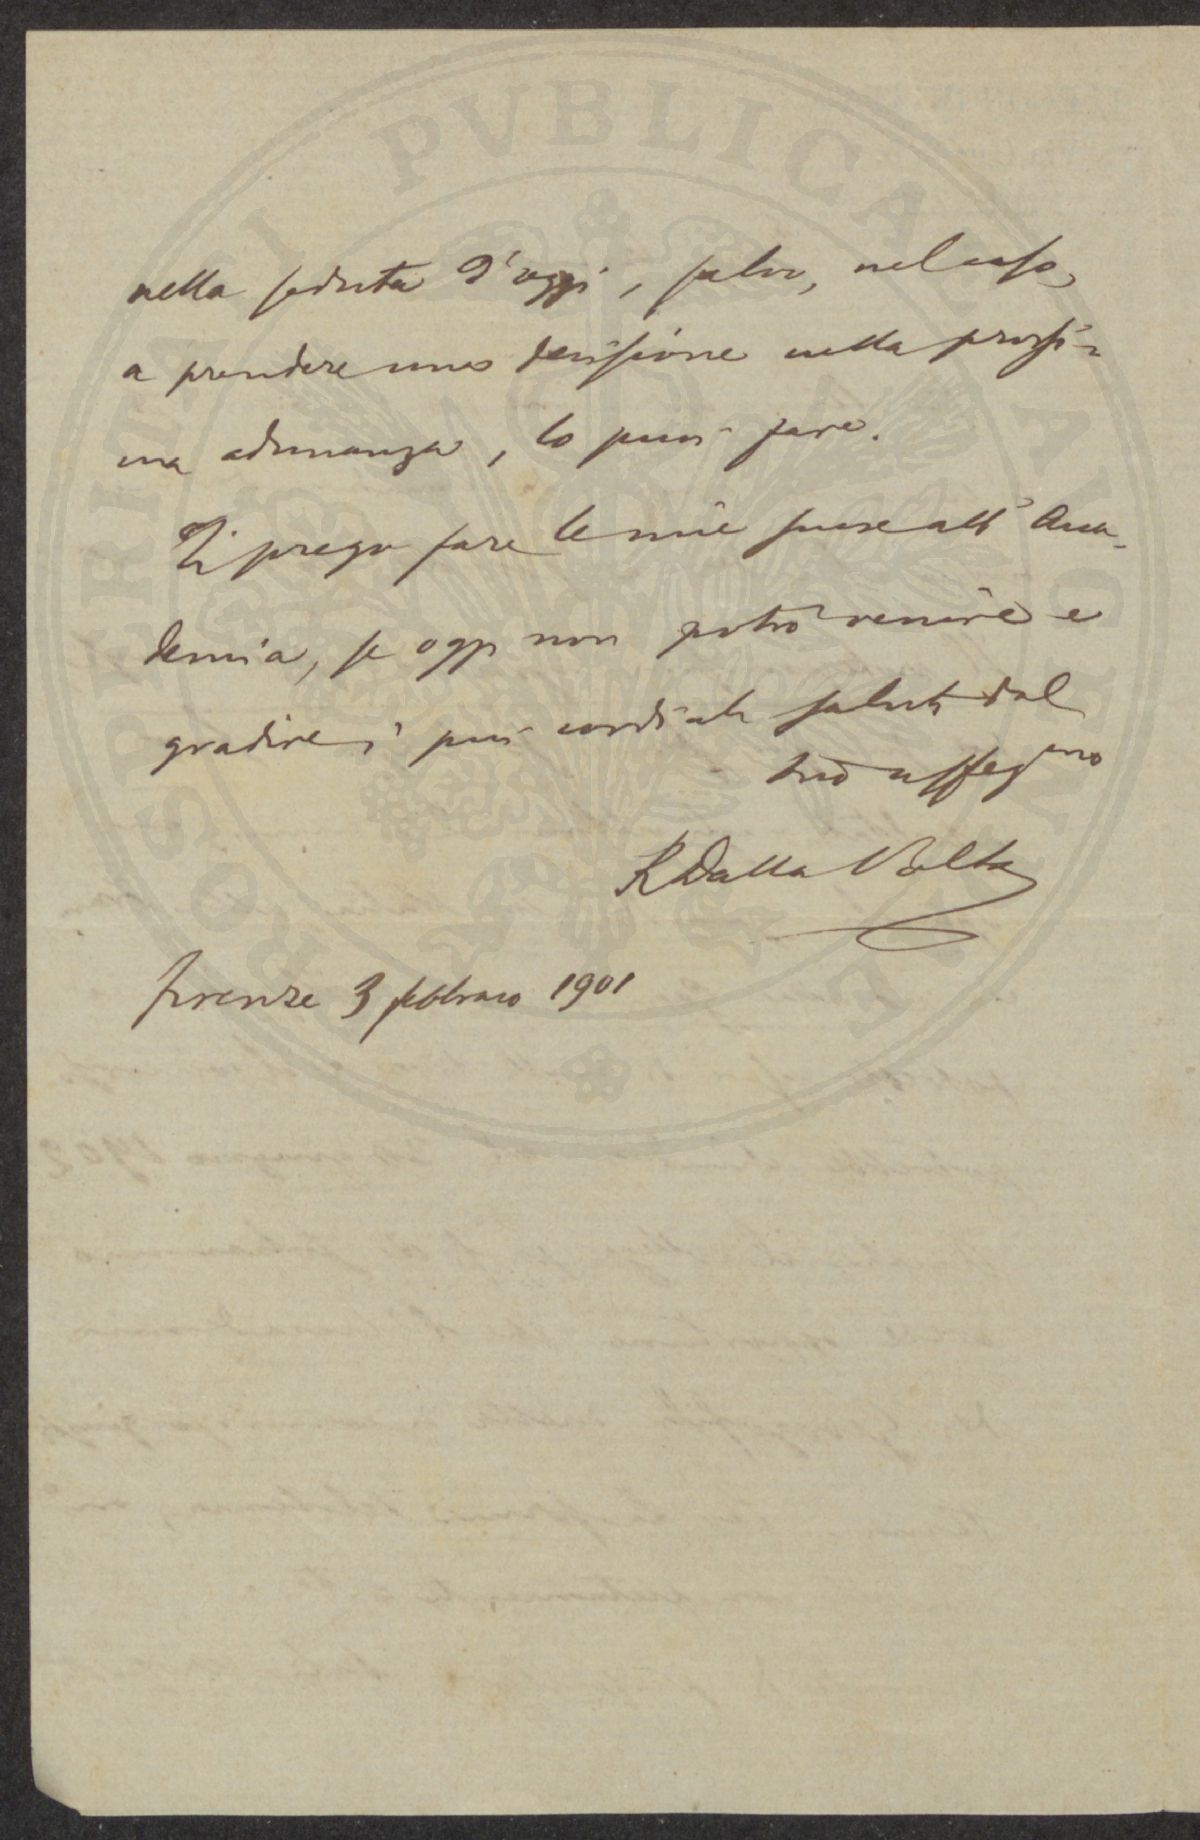 nella seduta d'oggi, salvo, nel caso,
a prendere una decisione nella prossi-
ma adunanza, lo puoi fare.
Ti prego fare le mie scuse all'Acca-
demia, se oggi non potrò venire e
gradire i più cordiali saluti dal
tuo affez mo
R Dalla Volta
Firenze 3 febbraio 1901